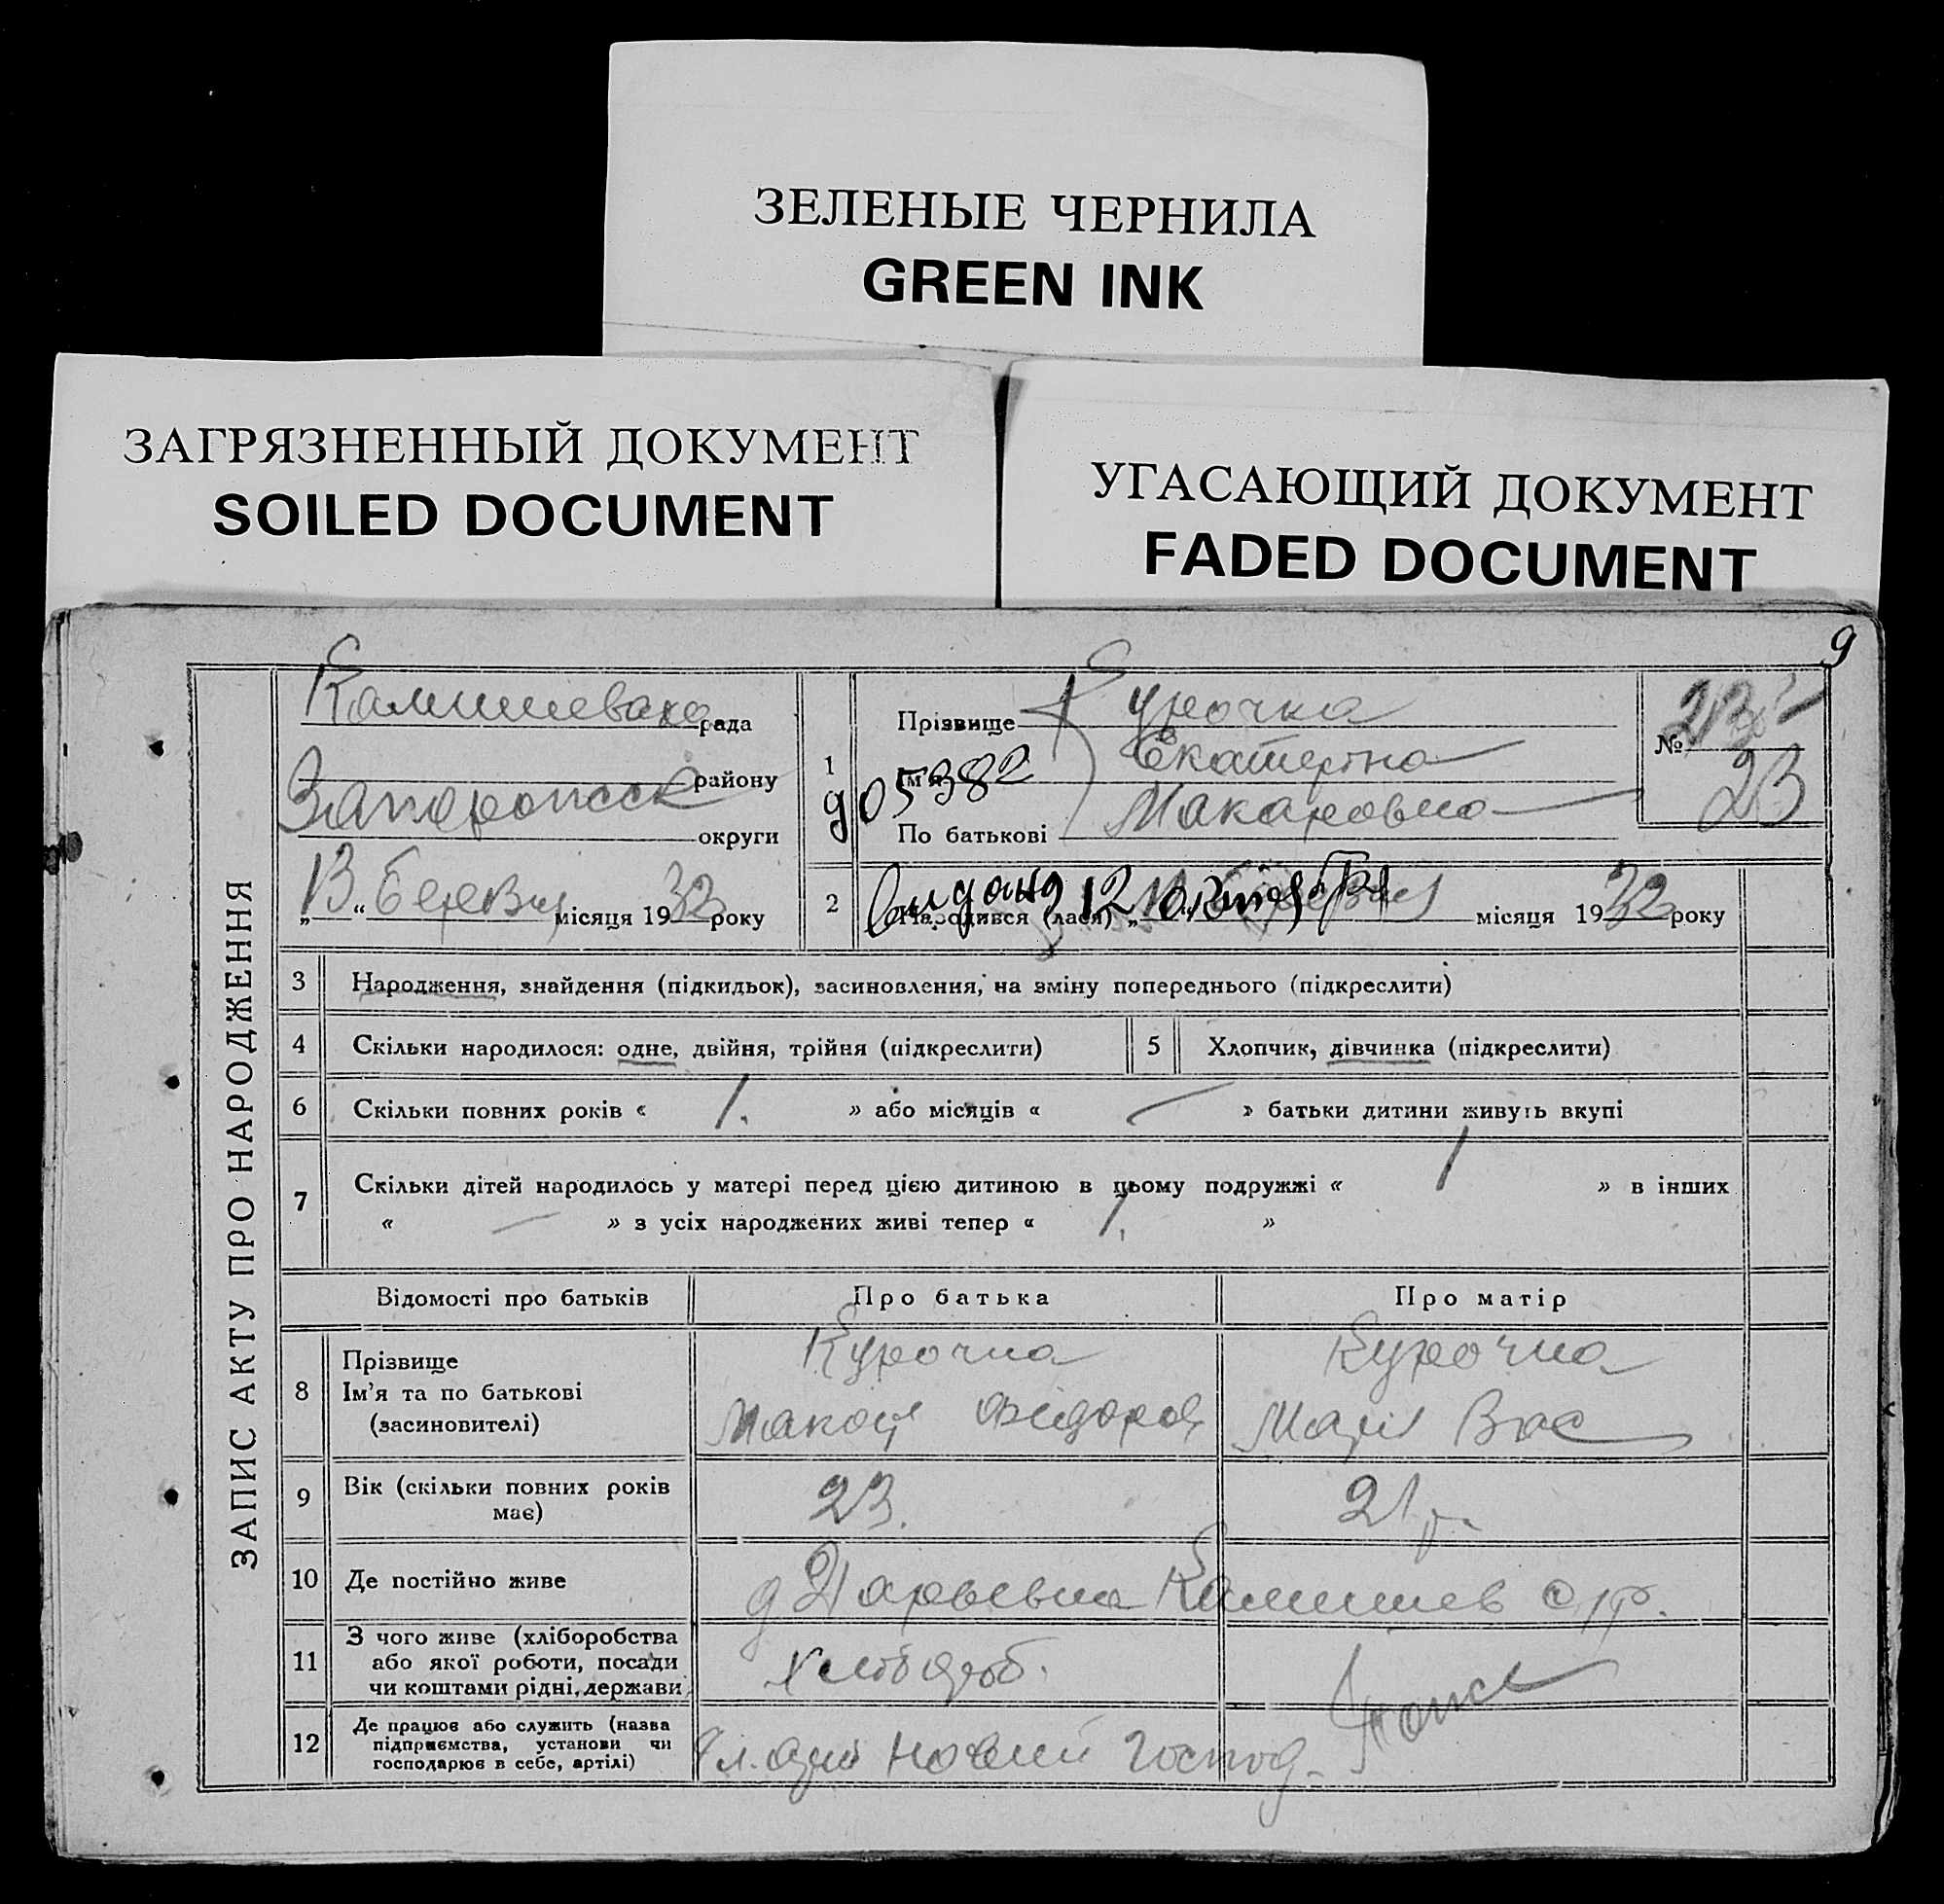 ЗЕЛЕНЫЕ ЧЕРНИЛА
GREEN INK
ЗАГРЯЗНЕННЫЙ ДОКУМЕНТ
SOILED DOCUMENT
УГАСАЮЩИЙ ДОКУМЕНТ
FADED DOCUMENT
9
ЗАПИС АКТУ ПРО НАРОДЖЕННЯ
рада
району
округи
13 " березня місяця 1932 року
1
Прізвище Курочка
Ім'я Екатерина
905382
По батькові Макаровна
№ 23
23
2 Народився (лася) " місяця 1932 року
видано 12
3 Народження, знайдення (підкидьок), засиновлення, на зміну попереднього (підкреслити)
4 Скільки народилося: одне, двійня, трійня (підкреслити)
5 Хлопчик, дівчинка (підкреслити)
6 Скільки повних років « 1. » або місяців « — » батьки дитини живуть вкупі
7 Скільки дітей народилось у матері перед цією дитиною в цьому подружжі « 1 » в інших
« — » з усіх народжених живі тепер « 1. »
Відомості про батьків Про батька Про матір
8 Прізвище
Ім'я та по батькові
(засиновителі)
Курочка
Макар Федоров
Курочка
Марія Вас
9 Вік (скільки повних років
має)
23.
21 р.
10 Де постійно живе
11 З чого живе (хліборобства
або якої роботи, посади
чи коштами рідні, держави
хлібороб.
12 Де працює або служить (назва
підприємства, установи чи
господарює в себе, артілі)